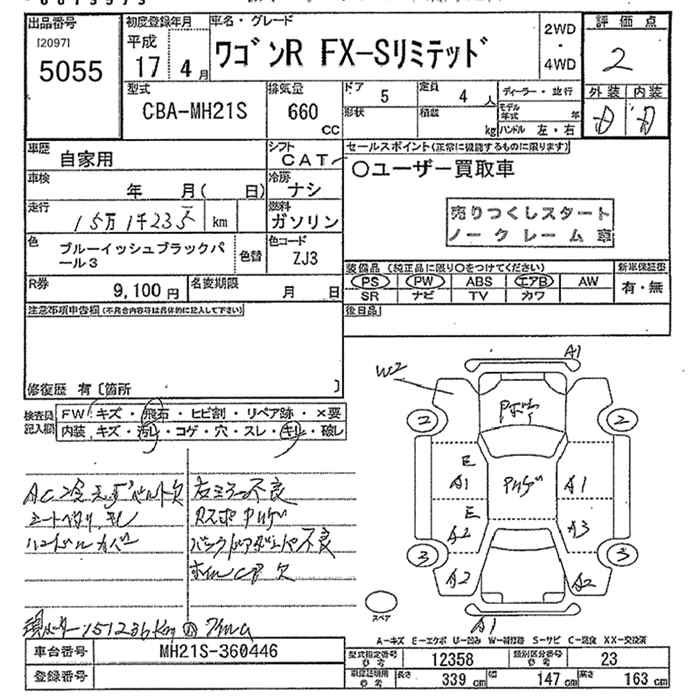 出品番号
[2097]
5055
初度登録年月
平成
17 4月
車名・グレード
ワゴンR FX-Sリミテッド
2WD
・
4WD
評価点
2
型式
CBA-MH21S
排気量
660
cc
ドア 5
定員 4 人
形状
積載 kg
ディーラー・並行
モデル年式 年
ハンドル 左・右
外装 内装
車歴
自家用
シフト
CAT
車検
年 月( 日)
冷房
ナシ
走行
km
燃料
ガソリン
色
ブルーイッシュブラックパール3
色替
色コード
ZJ3
R券
9,100円
名変期限
月 日
セールスポイント(正常に機能するものに限ります)
○ユーザー買取車
売りつくしスタート
ノークレーム車
装備品 (純正品に限り○をつけてください)
新車保証書
PS PW ABS エアB AW
SR ナビ TV カワ
有・無
後日品
注意事項申告欄(不具合内容等は具体的に記入して下さい)
修復歴 有〔箇所 〕
検査員記入欄
FW キズ・飛石・ヒビ割・リペア跡・×要
内装 キズ・汚れ・コゲ・穴・スレ・キレ・破レ
シートヘタリ、キレ
ハンドルカバー
右ミラー不良
A1
W2
2
2
E
A1
A1
E
A2
A3
3
3
A2
A2
A1
スペア
A-キズ E-エクボ U-凹み W-補修跡 S-サビ C-腐食 XX-交換済
車台番号
MH21S-360446
登録番号
型式指定番号 参考
12358
類別区分番号 参考
23
車庫証明用 参考
長さ 339 cm
幅 147 cm
高さ 163 cm